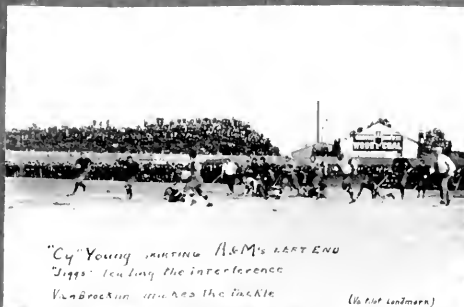 WOOD COAL
"Cy" Young SKIRTING A&M's LEFT END
"Jiggs" leading the interference
VanBrocklin makes the tackle
(Va Pilot Landmark)